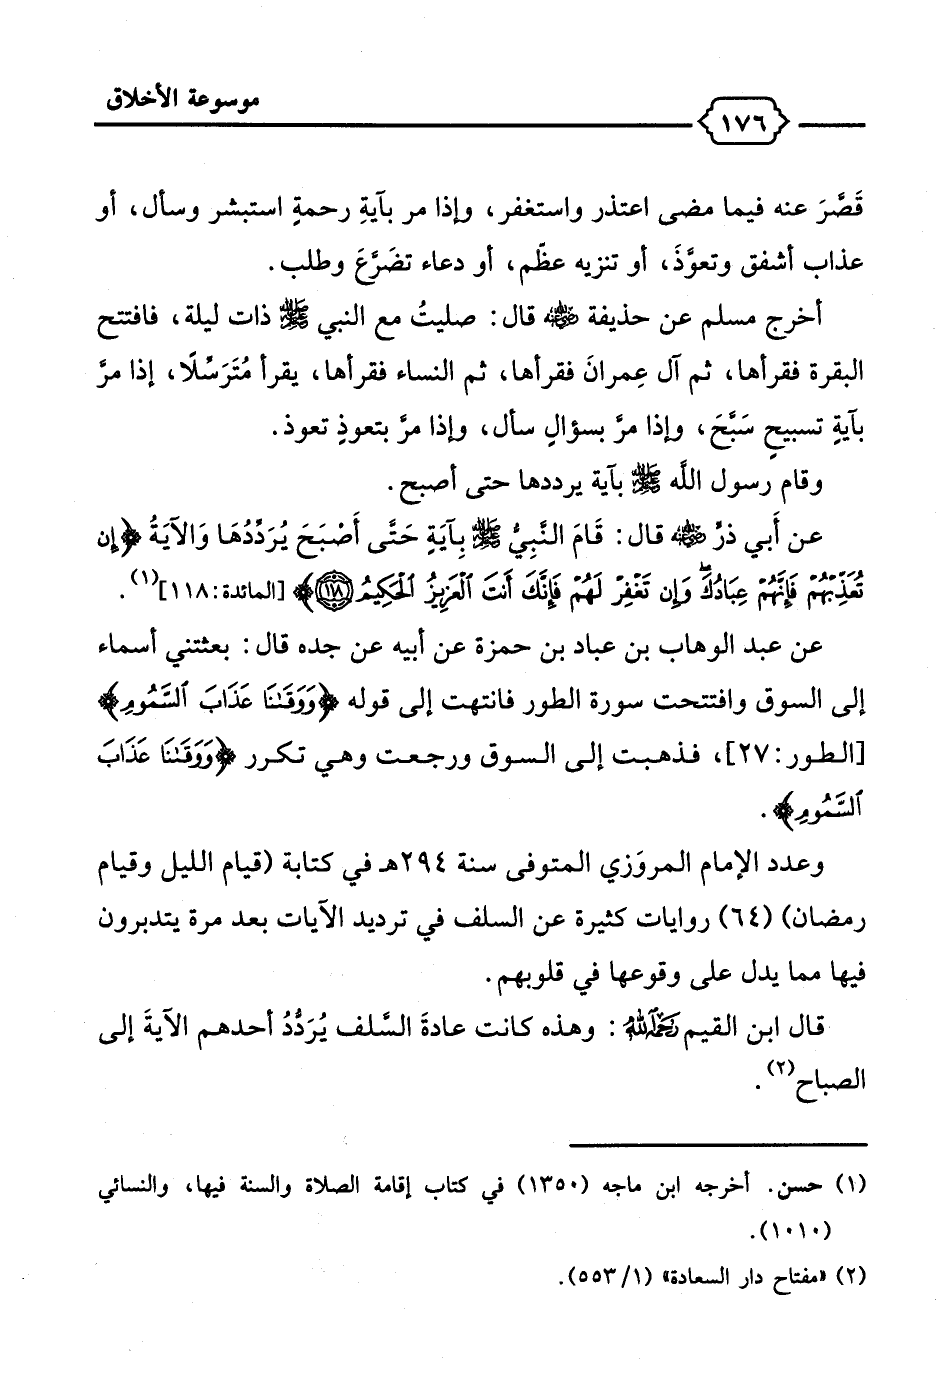 موسوعة الأخلاق
١٧٦
قَصَّرَ عنه فيما مضى اعتذر واستغفر، وإذا مر بآيةِ رحمةٍ استبشر وسأل، أو
عذاب أشفق وتعوَّذَ، أو تنزيه عظّم، أو دعاء تضَرَّعَ وطلب.
أخرج مسلم عن حذيفة رضي الله عنه قال: صليتُ مع النبي ﷺ ذات ليلة، فافتتح
البقرة فقرأها، ثم آل عِمرانَ فقرأها، ثم النساء فقرأها، يقرأ مُتَرَسِّلًا، إذا مرَّ
بآيةٍ تسبيحٍ سَبَّحَ، وإذا مرَّ بسؤالٍ سأل، وإذا مرَّ بتعوذٍ تعوذ.
وقام رسول اللَّه ﷺ بآية يرددها حتى أصبح.
عن أبي ذرٍّ رضي الله عنه قال: قَامَ النَّبِيُّ ﷺ بِآيَةٍ حَتَّى أَصْبَحَ يُرَدِّدُهَا وَالآيَةُ ﴿إِن
تُعَذِّبْهُمْ فَإِنَّهُمْ عِبَادُكَۖ وَإِن تَغْفِرْ لَهُمْ فَإِنَّكَ أَنتَ ٱلْعَزِيزُ ٱلْحَكِيمُ ١١٨﴾ [المائدة: ١١٨](١).
عن عبد الوهاب بن عباد بن حمزة عن أبيه عن جده قال: بعثتني أسماء
إلى السوق وافتتحت سورة الطور فانتهت إلى قوله ﴿وَوَقَىٰنَا عَذَابَ ٱلسَّمُومِ﴾
[الطور: ٢٧]، فذهبت إلى السوق ورجعت وهي تكرر ﴿وَوَقَىٰنَا عَذَابَ
ٱلسَّمُومِ﴾.
وعدد الإمام المروَزي المتوفى سنة ٢٩٤هـ في كتابة (قيام الليل وقيام
رمضان) (٦٤) روايات كثيرة عن السلف في ترديد الآيات بعد مرة يتدبرون
فيها مما يدل على وقوعها في قلوبهم.
قال ابن القيم رحمه الله: وهذه كانت عادةَ السَّلف يُرَدُّدُ أحدهم الآيةَ إلى
الصباح(٢).
(١) حسن. أخرجه ابن ماجه (١٣٥٠) في كتاب إقامة الصلاة والسنة فيها، والنسائي
(١٠١٠).
(٢) «مفتاح دار السعادة» (١/ ٥٥٣).